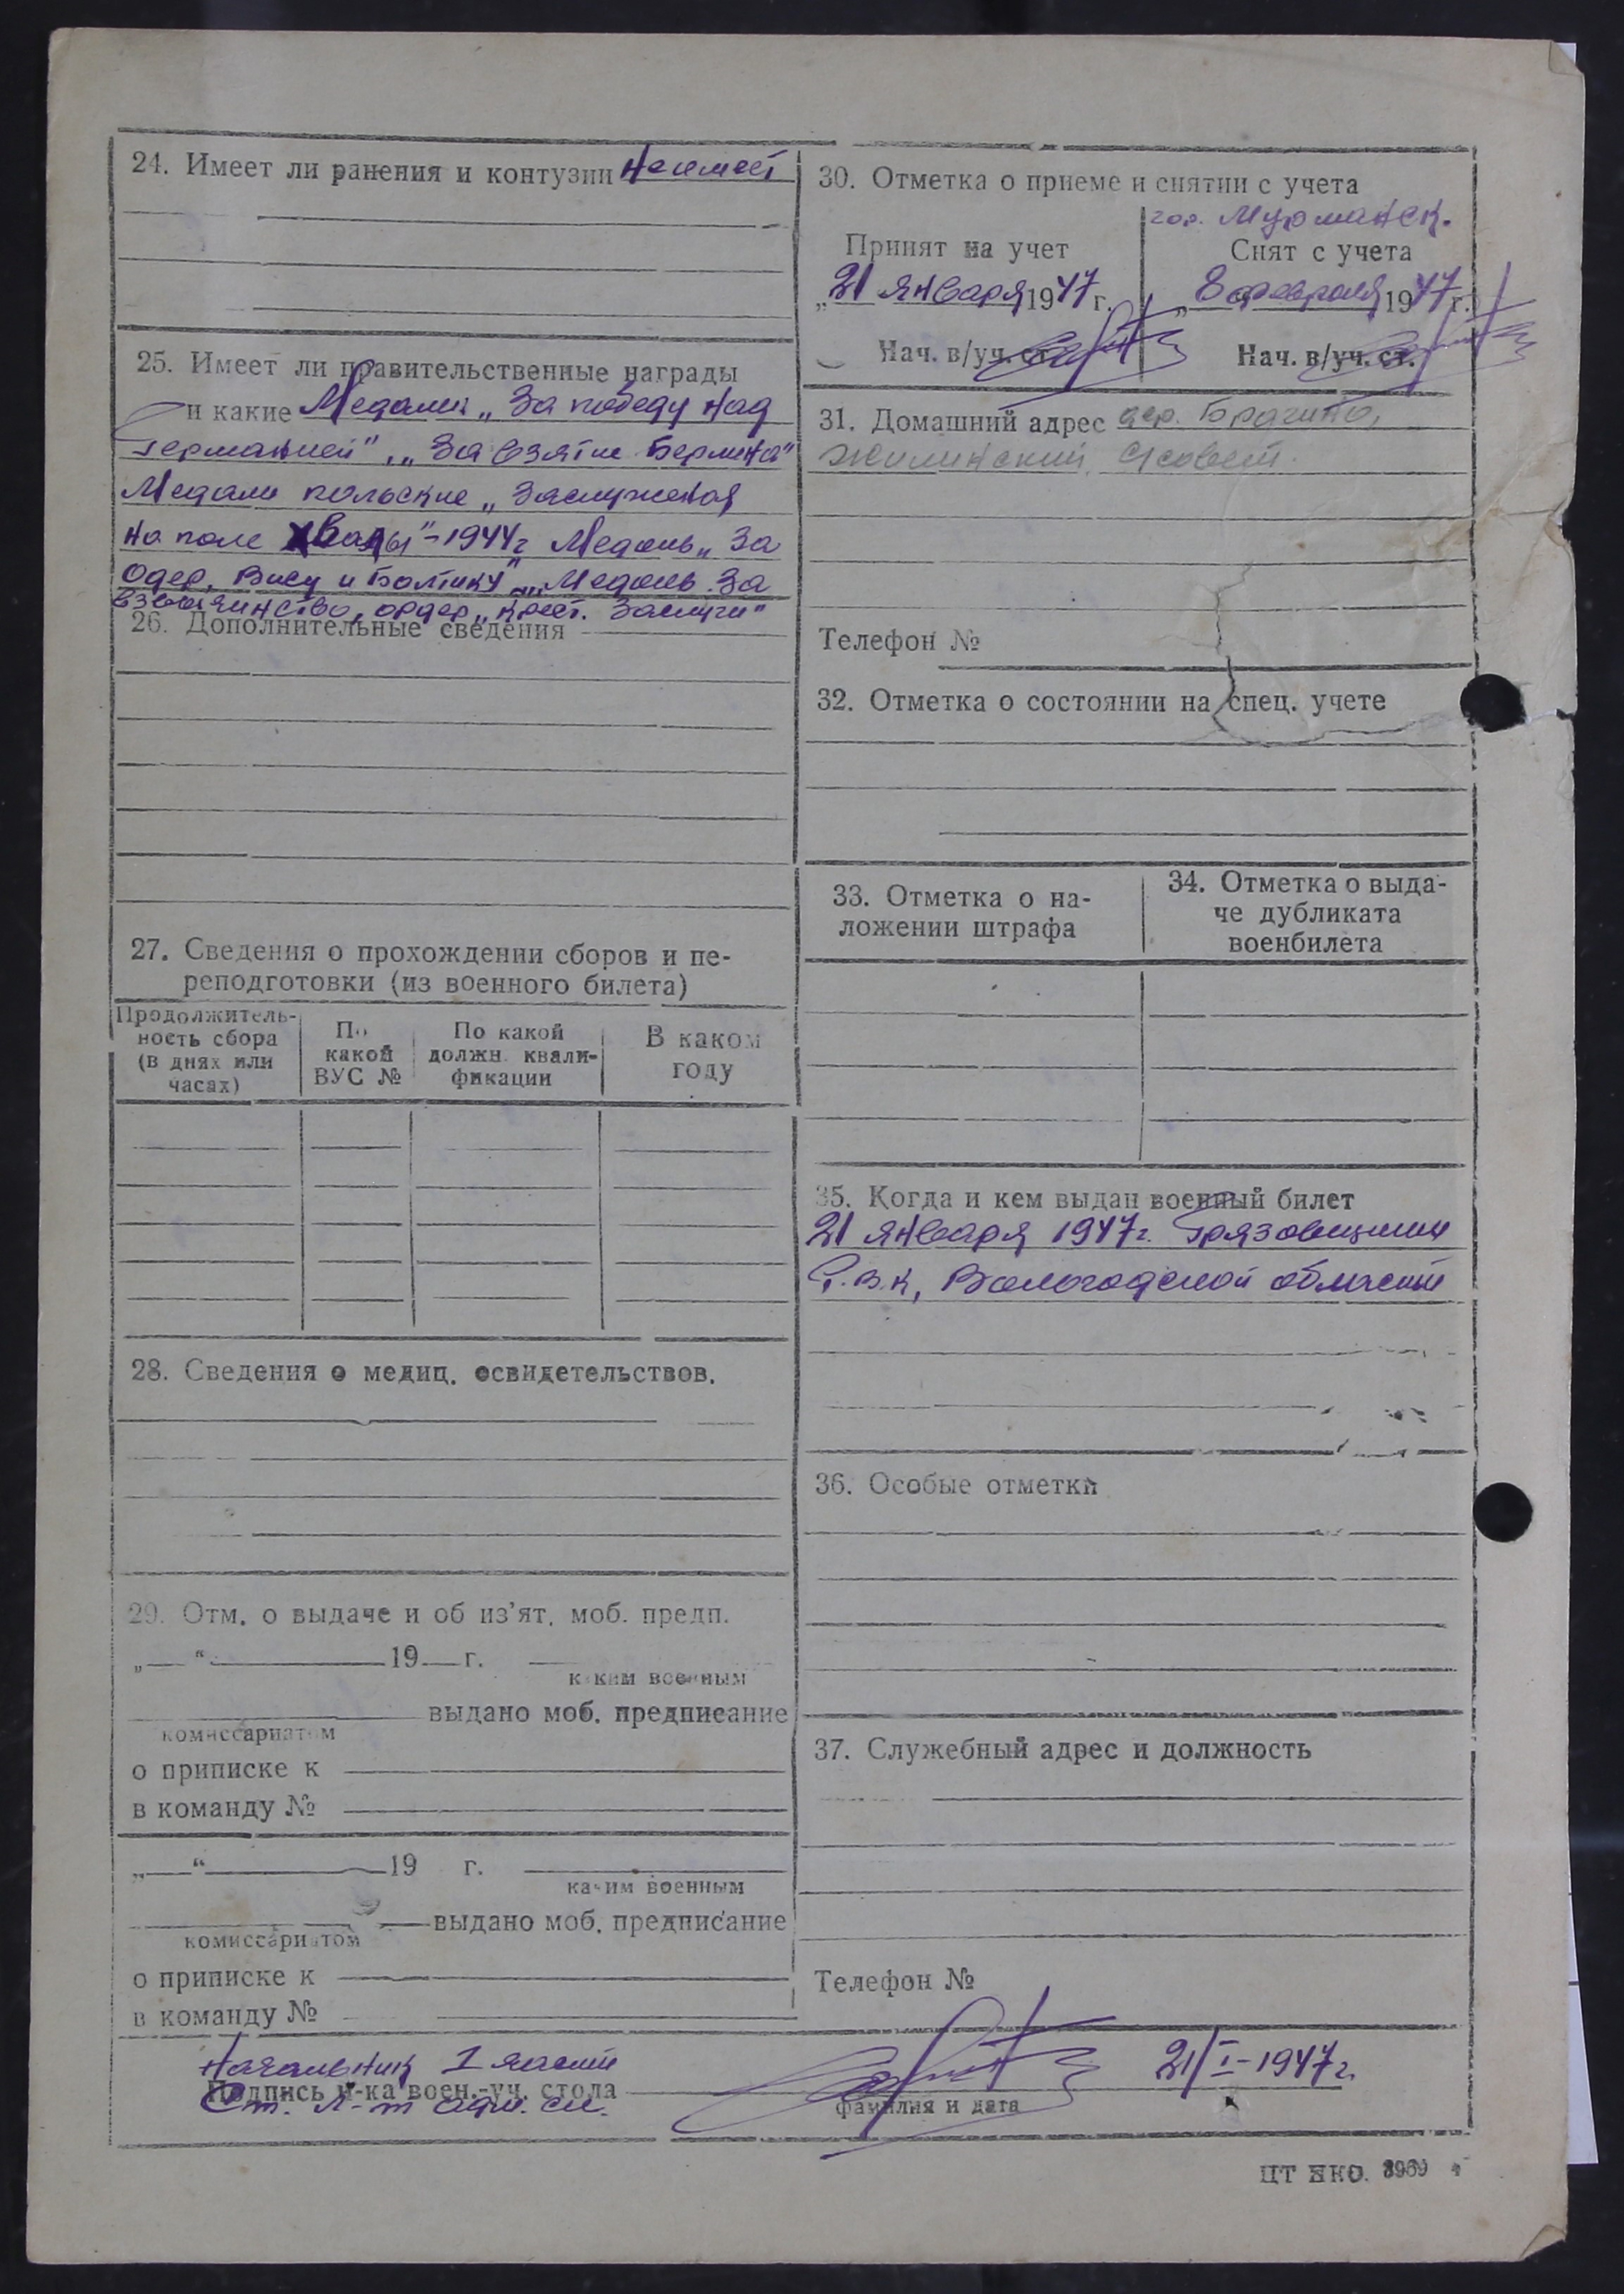 24. Имеет ли ранения и контузии Не имеет
25. Имеет ли правительственные награды
и какие Медали „За победу над
Германией", „За взятие Берлина"
Медали польские „Заслуженоя
на поле хвалы"-1944г Медаль „За
Одер, Нису и Балтику" „Медаль За
ордер „Крест. Заслуги"
26. Дополнительные сведения
27. Сведения о прохождении сборов и пе-
реподготовки (из военного билета)
Продолжитель-
ность сбора
(в днях или
часах)
По
какой
ВУС №
По какой
должн. квали-
фикации
В каком
году
28. Сведения о медиц. освидетельствов.
29. Отм. о выдаче и об из'ят. моб. предп.
„ “ 19 г.
каким военным
выдано моб. предписание
комиссариатом
о приписке к
в команду №
„ “ 19 г.
каким военным
выдано моб. предписание
комиссариатом
о приписке к
в команду №
30. Отметка о приеме и снятии с учета
гор. Мурманск.
Принят на учет
„21 января 1947 г.
Нач. в/уч. ст.
Снят с учета
„8 февраля 1947 г.
Нач. в/уч. ст.
31. Домашний адрес дер.
Жилинский с/совет.
Телефон №
32. Отметка о состоянии на спец. учете
33. Отметка о на-
ложении штрафа
34. Отметка о выда-
че дубликата
военбилета
35. Когда и кем выдан военный билет
21 января 1947г. Грязовецким
Р.В.К, Вологодской области
36. Особые отметки
37. Служебный адрес и должность
Телефон №
Начальник 1 части
Подпись н-ка воен.-уч. стола
Ст. л-т адм. сл.
21/I-1947г.
фамилия и дата
ЦТ НКО. 3969